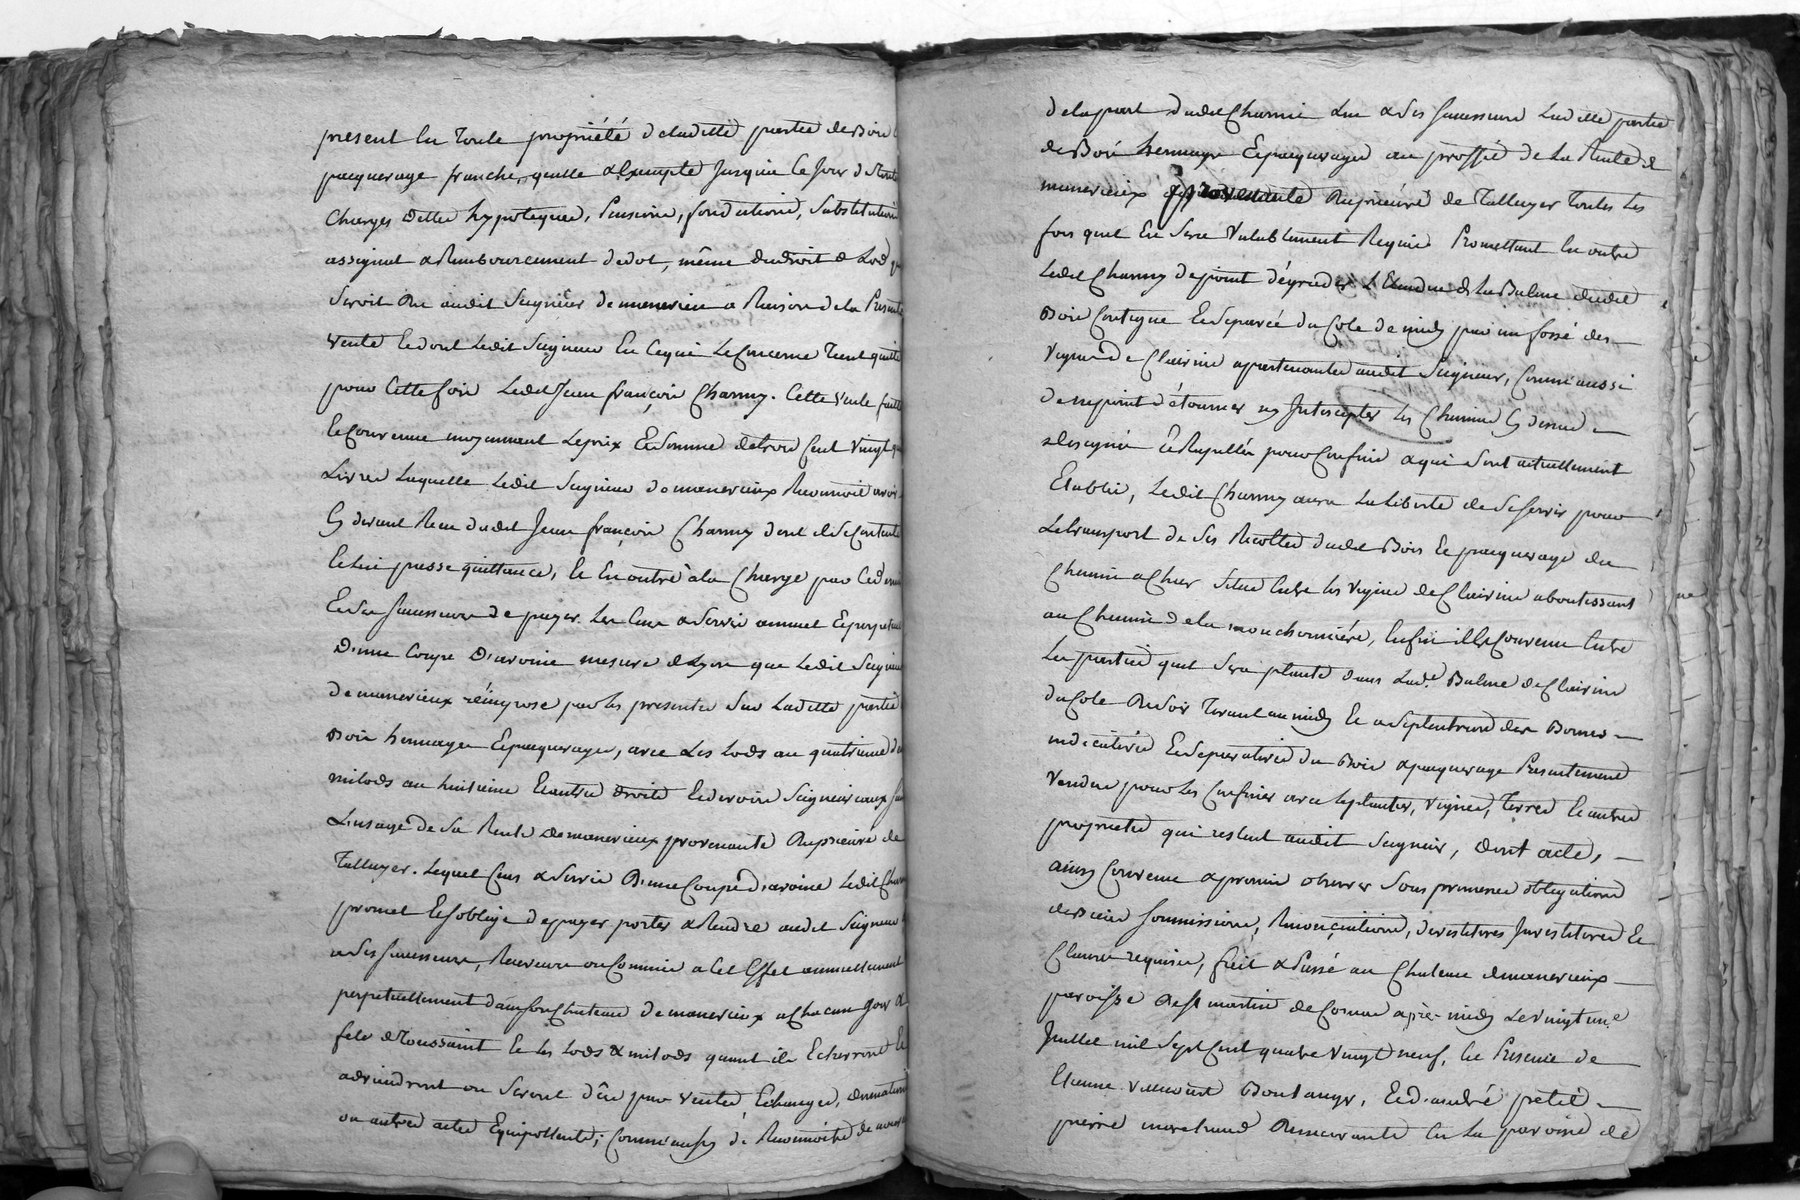 présent la toute propriété de laditte partie de Bois
paquerage franche, quitte & exempte jusques ce jour de toute
charges dette hypoteques, Pensions, fondations, Substitutions
assignat & Rembourcement de dot, même du droit de Lod
Seroit dû audit Seigneur de manevieu a Raison de la Presente
vente et dont Ledit Seigneur En ce qui Le Concerne Tient quitte
pour Cette fois Ledit Jean françois Charmy. Cette Vente faitte
Et Convenue moyennant Le prix Et Somme de trois Cent Vingt
Livres Laquelle Ledit Seigneur de manevieux Reconnoit avoir
Cy devant Reçu dudit Jean françois Charmy dont il Se Contente
Et Lui passe quittance, Et En outre à la Charge par
Et Ses Successeurs de payer Les Cens & Servis annuel Et perpetuel
D'une Coupe D'avoine mesure de Lyon que Ledit Seigneur
de manevieux réimpose par les presentes Sur Laditte partie
Bois hermages Et paquerages, avec Les Lods au quatrieme
milods au huitieme Et autres Droits Et devoirs Seigneuriaux
L'usage de Sa Rente de manevieux provenante du prieuré de
Talluyer. Lequel Cens & Servis D'une Coupe d'avoine Ledit
promet Et S'oblige de payer porter & Rendre audit Seigneur
a Ses Successeurs, Receveurs ou Commis a Cet Effet annuellement
perpetuellement dans Son Chateau de manevieux a Chacun jour &
fete de Toussaint Et Les Lods & milods quant ils Echerront Et
adviendront ou Seront dûs par Ventes Echanges, donnations
ou autres actes Equipollents; Comme aussy de Reconnoitre de nouveau
de la part dudit Charmy Lui & Ses Successeurs Laditte partie
de Bois hermage Et paquerages au proffit de La Rente de
manevieux du prieuré de Talluyer toutes les
fois qu'il En Sera Valablement Requis. Promettant En outre
Ledit Charmy de point dégrader L'Etendue de La Balme dudit
Bois Contigue Et Separée du Cote de midy par un fossé des
Vignes de Clairine apartenantes audit Seigneur, Comme aussi
de ne point détourner ny Intercepter les Chemins Cy dessus
designés Et Rapellés pour Confins & qui Sont actuellement
Etablis, Ledit Charmy aura La Liberté de Se Servir pour
Le transport de Ses Recoltes dudit Bois Et paquerage du
Chemin a Char Situé Entre les Vignes de Clairine aboutissant
au Chemin de la mouchonniére, Enfin il Est Convenu Entre
Les parties qu'il Sera planté dans Lad.e Balme de Clairine
du Cote du Soir Tirant au midy Et a Septentrion des Bornes
indicatives Et Separatives du Bois & paquerage Presentement
Vendus pour les Confiner avec les plantes, vignes, Terres Et autres
proprietes qui restent audit Seigneur, dont acte,
ainsy Convenu & promis observer Sous promesses obligations
de Biens Soumissions, Renonçiations, devestitures Investitures Et
Clauses requises, fait & Passé au Chateau de manevieux
paroisse de St martin de Cornas après-midy Le vingt un.e
Juillet mil Sept Cent quatre Vingt neuf, En Presence de
Etienne Boulanger, Et d'andré petit
pierre marchand demeurants En La paroisse de